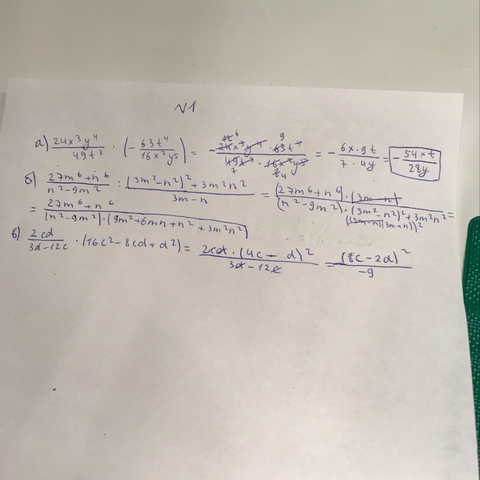 √1
а) 24x³y⁴/49t³ · (-63t⁴/16x²y⁵) = -24x³y⁴ · 63t⁴/49t³ · 16x²y⁵ = -6x·9t/7·4y = -54xt/28y
б) 27m⁶+n⁶/n²-9m² : (3m²-n²)²+3m²n²/3m-n = (27m⁶+n⁶)·(3m-n)/(n²-9m²)·(3m²-n²)²+3m²n² =
= 27m⁶+n⁶/(n²-9m²)·(9m²+6mn+n²+3m²n²)
в) 2cd/3d-12c · (16c²-8cd+d²) = 2cd·(4c-d)²/3d-12c = (8c-2d)²/-9